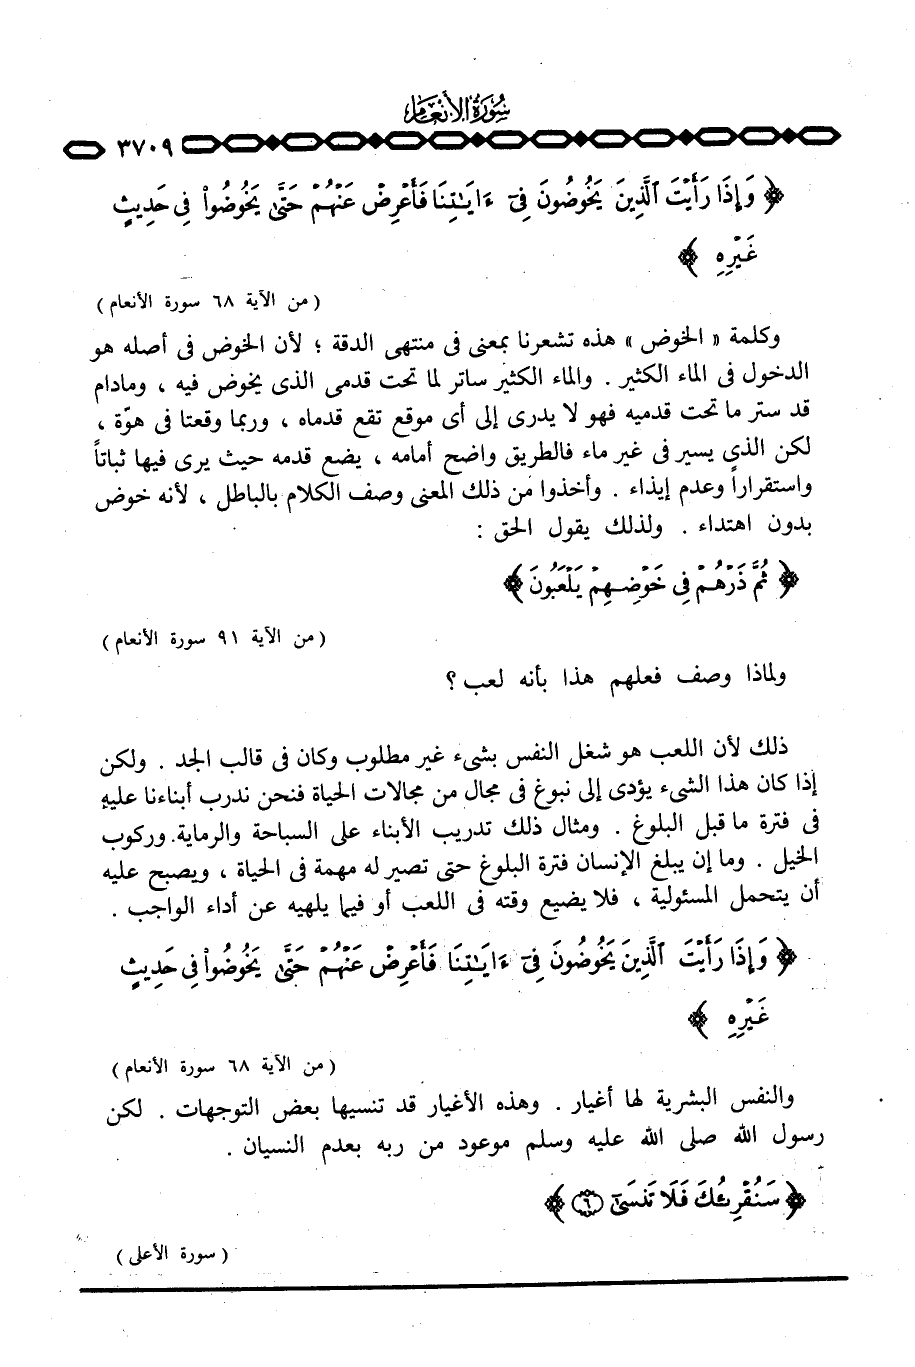 سورة الأنعام
٣٧٠٩
﴿ وَإِذَا رَأَيْتَ ٱلَّذِينَ يَخُوضُونَ فِىٓ ءَايَـٰتِنَا فَأَعْرِضْ عَنْهُمْ حَتَّىٰ يَخُوضُواْ فِى حَدِيثٍ
غَيْرِهِۦ ﴾
( من الآية ٦٨ سورة الأنعام )
وكلمة « الخوض » هذه تشعرنا بمعنى فى منتهى الدقة ؛ لأن الخوض فى أصله هو
الدخول فى الماء الكثير . والماء الكثير ساتر لما تحت قدمى الذى يخوض فيه ، ومادام
قد ستر ما تحت قدميه فهو لا يدرى إلى أى موقع تقع قدماه ، وربما وقعتا فى هوّة ،
لكن الذى يسير فى غير ماء فالطريق واضح أمامه ، يضع قدمه حيث يرى فيها ثباتاً
واستقراراً وعدم إيذاء . وأخذوا من ذلك المعنى وصف الكلام بالباطل ، لأنه خوض
بدون اهتداء . ولذلك يقول الحق :
﴿ ثُمَّ ذَرْهُمْ فِى خَوْضِهِمْ يَلْعَبُونَ ﴾
( من الآية ٩١ سورة الأنعام )
ولماذا وصف فعلهم هذا بأنه لعب ؟
ذلك لأن اللعب هو شغل النفس بشىء غير مطلوب وكان فى قالب الجد . ولكن
إذا كان هذا الشىء يؤدى إلى نبوغ فى مجال من مجالات الحياة فنحن ندرب أبناءنا عليه
فى فترة ما قبل البلوغ . ومثال ذلك تدريب الأبناء على السباحة والرماية. وركوب
الخيل . وما إن يبلغ الإنسان فترة البلوغ حتى تصير له مهمة فى الحياة ، ويصبح عليه
أن يتحمل المسئولية ، فلا يضيع وقته فى اللعب أو فيما يلهيه عن أداء الواجب .
﴿ وَإِذَا رَأَيْتَ ٱلَّذِينَ يَخُوضُونَ فِىٓ ءَايَـٰتِنَا فَأَعْرِضْ عَنْهُمْ حَتَّىٰ يَخُوضُواْ فِى حَدِيثٍ
غَيْرِهِۦ ﴾
( من الآية ٦٨ سورة الأنعام )
والنفس البشرية لها أغيار . وهذه الأغيار قد تنسيها بعض التوجهات . لكن
رسول الله صلى الله عليه وسلم موعود من ربه بعدم النسيان .
﴿ سَنُقْرِئُكَ فَلَا تَنسَىٰٓ ٦ ﴾
( سورة الأعلى )